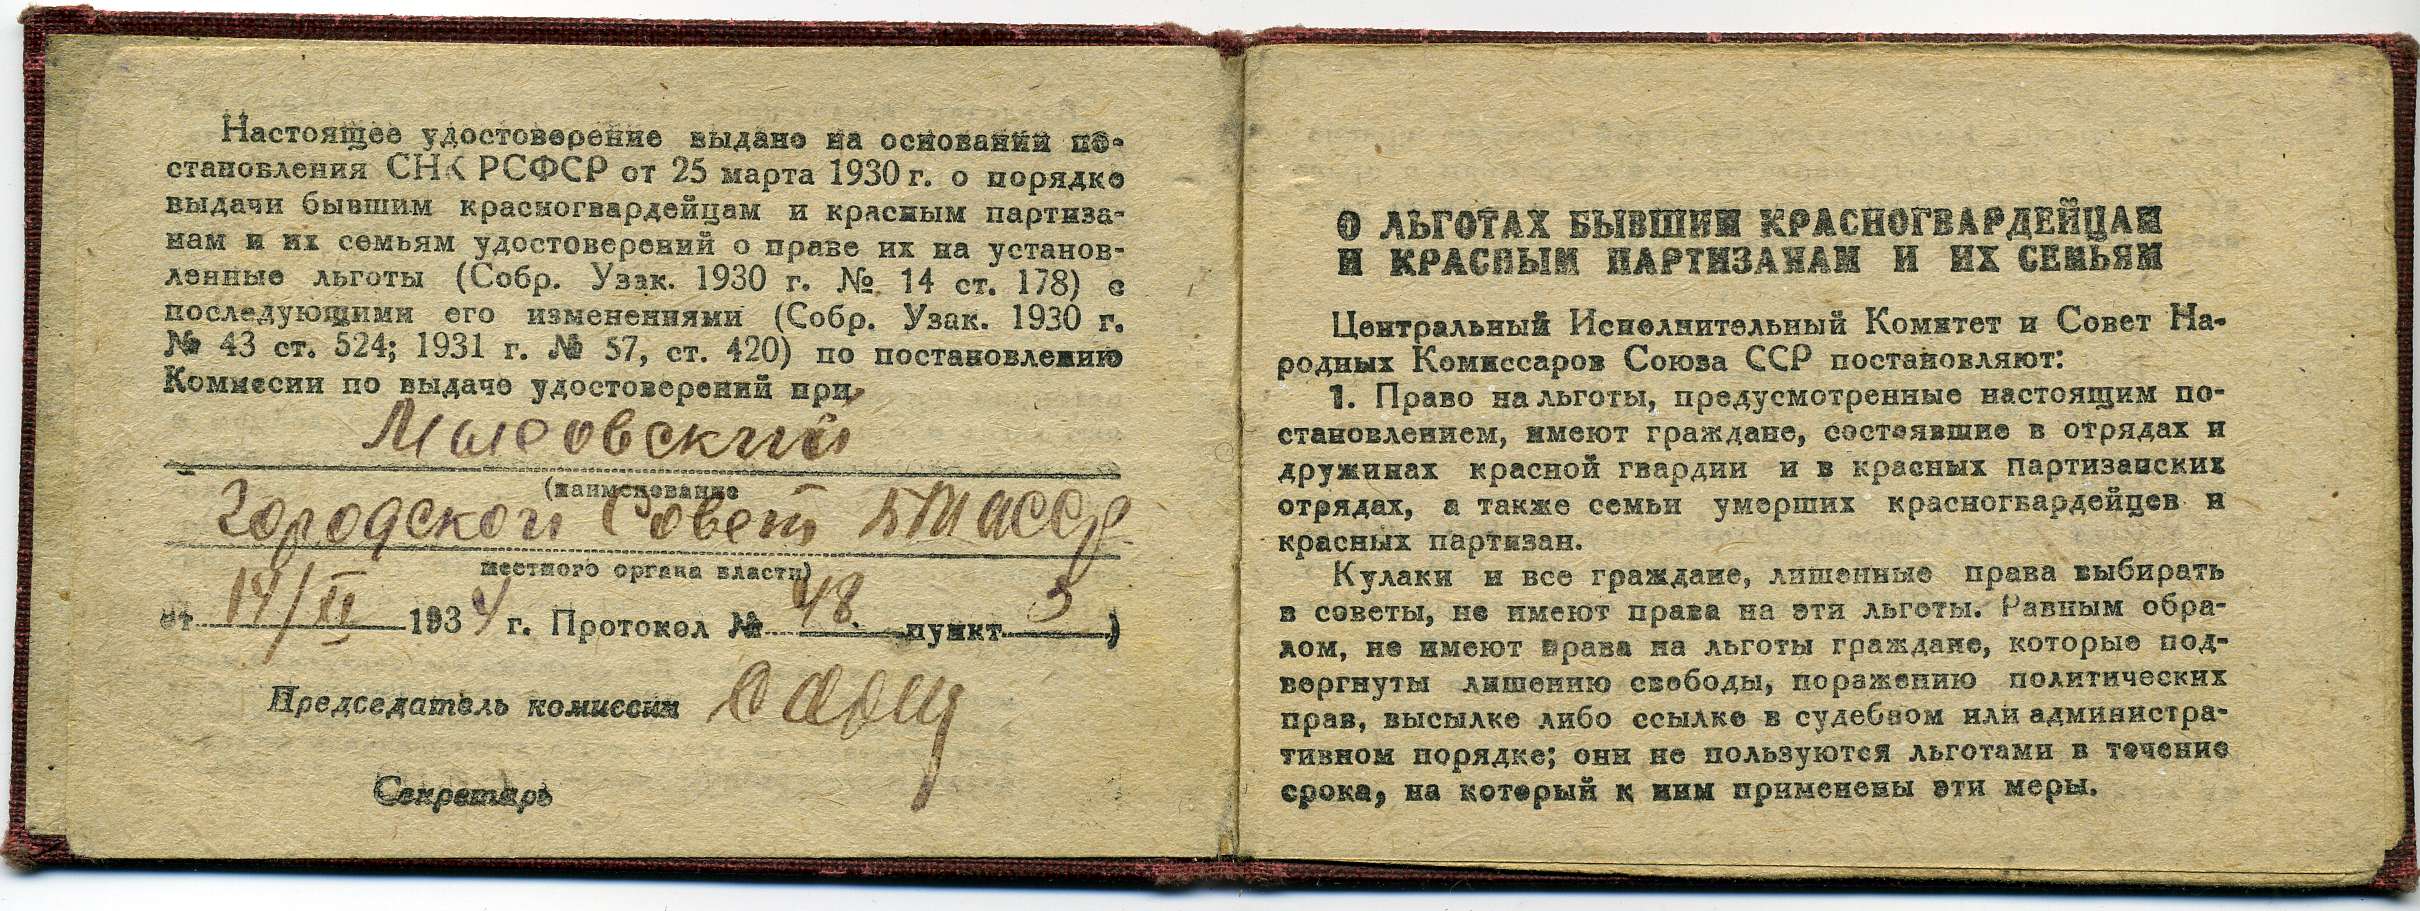 Настоящее удостоверение выдано на основании по-
становления СНК РСФСР от 25 марта 1930 г. о порядке
выдачи бывшим красногвардейцам и красным партиза-
нам и их семьям удостоверений о праве их на установ-
ленные льготы (Собр. Узак. 1930 г. № 14 ст. 178) с
последующими его изменениями (Собр. Узак. 1930 г.
№ 43 ст. 524; 1931 г. № 57, ст. 420) по постановлению
Комиссии по выдаче удостоверений при
(наименование
Городской Совет
местного органа власти)
от 14/II 1934 г. Протокол № 48 пункт 3)
Председатель комиссии
Секретарь
О ЛЬГОТАХ БЫВШИМ КРАСНОГВАРДЕЙЦАМ
И КРАСНЫМ ПАРТИЗАНАМ И ИХ СЕМЬЯМ
Центральный Исполнительный Комитет и Совет На-
родных Комиссаров Союза ССР постановляют:
1. Право на льготы, предусмотренные настоящим по-
становлением, имеют граждане, состоявшие в отрядах и
дружинах красной гвардии и в красных партизанских
отрядах, а также семьи умерших красногвардейцев и
красных партизан.
Кулаки и все граждане, лишенные права выбирать
в советы, не имеют права на эти льготы. Равным обра-
зом, не имеют права на льготы граждане, которые под-
вергнуты лишению свободы, поражению политических
прав, высылке либо ссылке в судебном или администра-
тивном порядке; они не пользуются льготами в течение
срока, на который к ним применены эти меры.